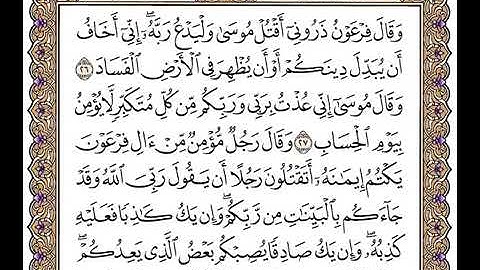 وَقَالَ فِرْعَوْنُ ذَرُونِىٓ أَقْتُلْ مُوسَىٰ وَلْيَدْعُ رَبَّهُۥٓ ۖ إِنِّىٓ أَخَافُ
أَن يُبَدِّلَ دِينَكُمْ أَوْ أَن يُظْهِرَ فِى ٱلْأَرْضِ ٱلْفَسَادَ ٢٦
وَقَالَ مُوسَىٰٓ إِنِّى عُذْتُ بِرَبِّى وَرَبِّكُم مِّن كُلِّ مُتَكَبِّرٍ لَّا يُؤْمِنُ
بِيَوْمِ ٱلْحِسَابِ ٢٧ وَقَالَ رَجُلٌ مُّؤْمِنٌ مِّنْ ءَالِ فِرْعَوْنَ
يَكْتُمُ إِيمَـٰنَهُۥٓ أَتَقْتُلُونَ رَجُلًا أَن يَقُولَ رَبِّىَ ٱللَّهُ وَقَدْ
جَآءَكُم بِٱلْبَيِّنَـٰتِ مِن رَّبِّكُمْ ۖ وَإِن يَكُ كَـٰذِبًا فَعَلَيْهِ
كَذِبُهُۥ ۖ وَإِن يَكُ صَادِقًا يُصِبْكُم بَعْضُ ٱلَّذِى يَعِدُكُمْ ۖ